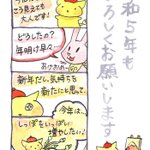 令和5年も
よろしくお願いします
こう見えても
大人です!
どうしたの?
年明け早々
新年だし、気持ちを
新たにと思って…
今年は、
しっぽをいっぱい
増やしたい!